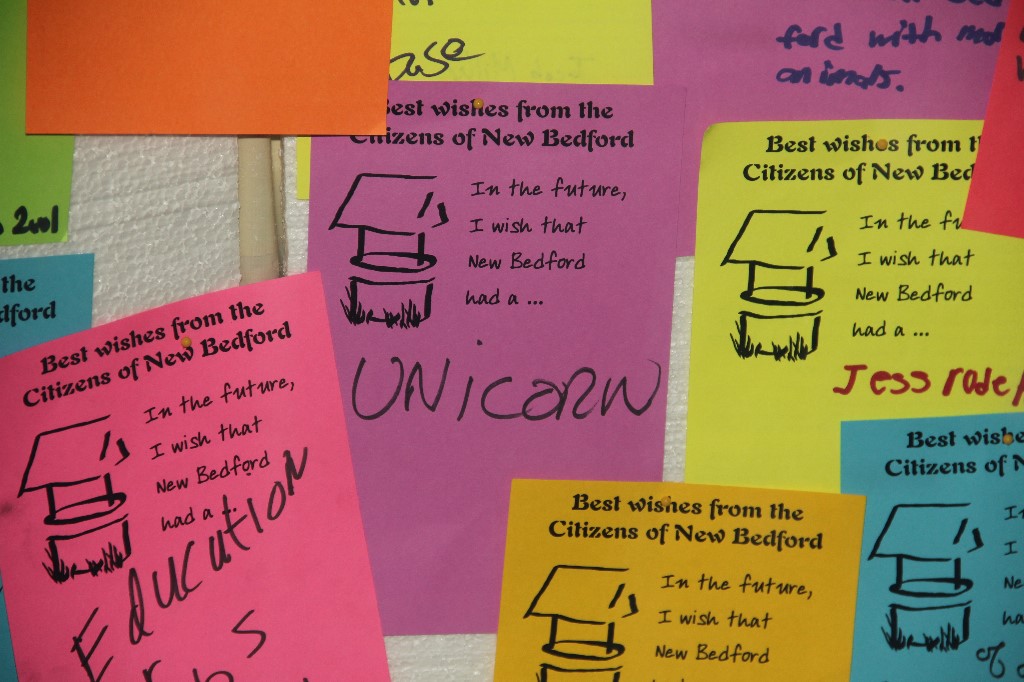 ford with
animals.
Best wishes from the
Citizens of New Bedford
In the future,
I wish that
New Bedford
had a ...
UNicorn
Best wishes from
Citizens of New
In the
I wish that
New Bedford
had a ...
Jess
the
Best wishes from the
Citizens of New Bedford
In the future,
I wish that
New Bedford
had a ...
Education
Best wishes from the
Citizens of New Bedford
In the future,
I wish that
New Bedford
Best wishes
Citizens of
I
of